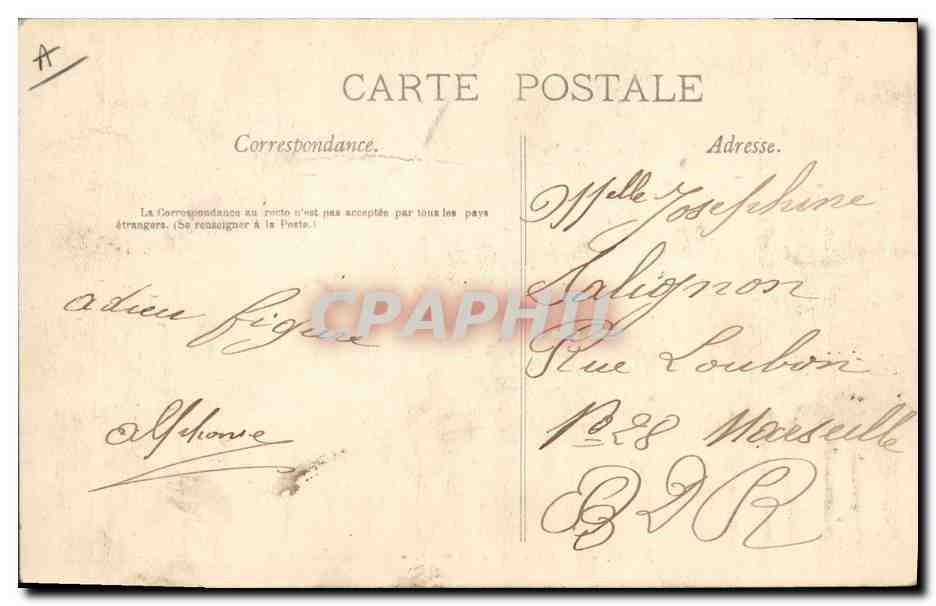 A
CARTE POSTALE
Correspondance.
La Correspondance au recto n'est pas acceptée par tous les pays
étrangers. (Se renseigner à la Poste.)
adieu figure
alphonse
Adresse.
Melle Josephine
Salignon
Rue Loubon
No 28 Marseille
B D R
CPAPHIL